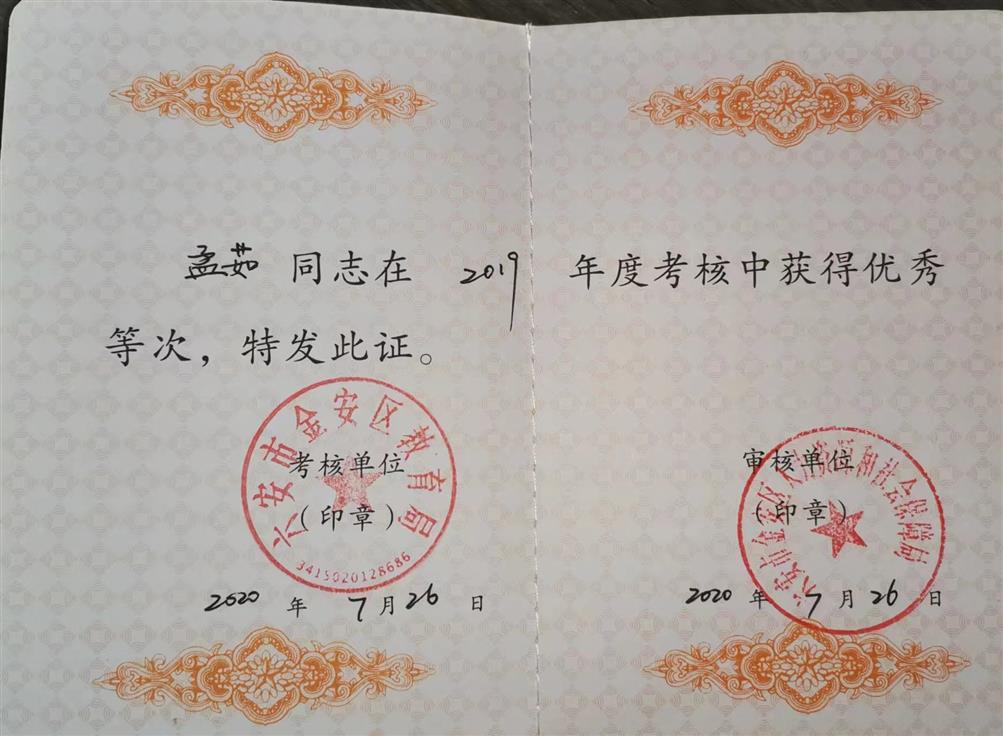 孟茹 同志在 2019 年度考核中获得优秀
等次，特发此证。
六安市金安区教育局
考核单位
（印章）
3415020128686
2020 年 7月26 日
六安市金安区人力资源和社会保障局
审核单位
（印章）
2020 年 7 月 26 日